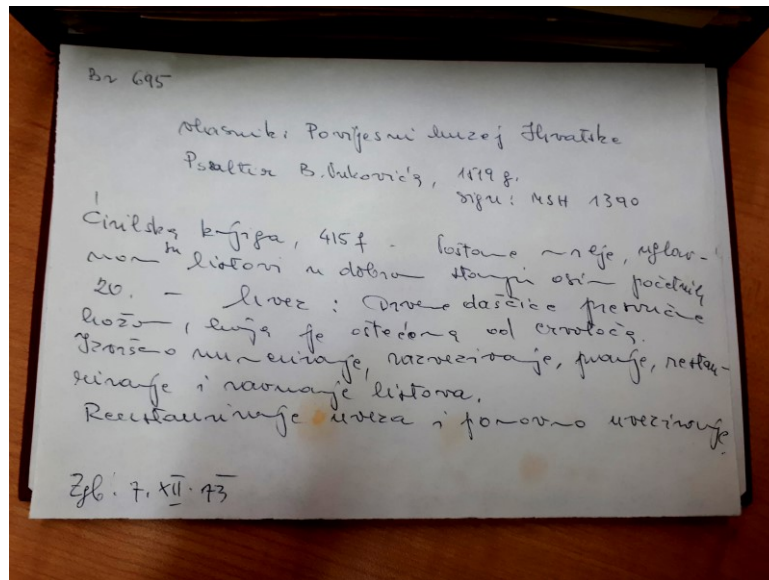 Br 695
vlasnik: Povijesni muzej Hrvatske
Psaltir B. Vukovića, 1519 g.
sign: MSH 1390
Ćirilska knjiga, 415 f - uglav-
nom su listovi u dobrom stanju osim početnih
20. - Uvez: Drvene daščice prevučene
kožom, koja je oštećena od crvotoča.
Izvršeno numeriranje, razvezivanje, pranje, restau-
riranje i ravnanje listova.
Restauriranje uveza i ponovno uvezivanje.
Zgb. 7. XII. 73